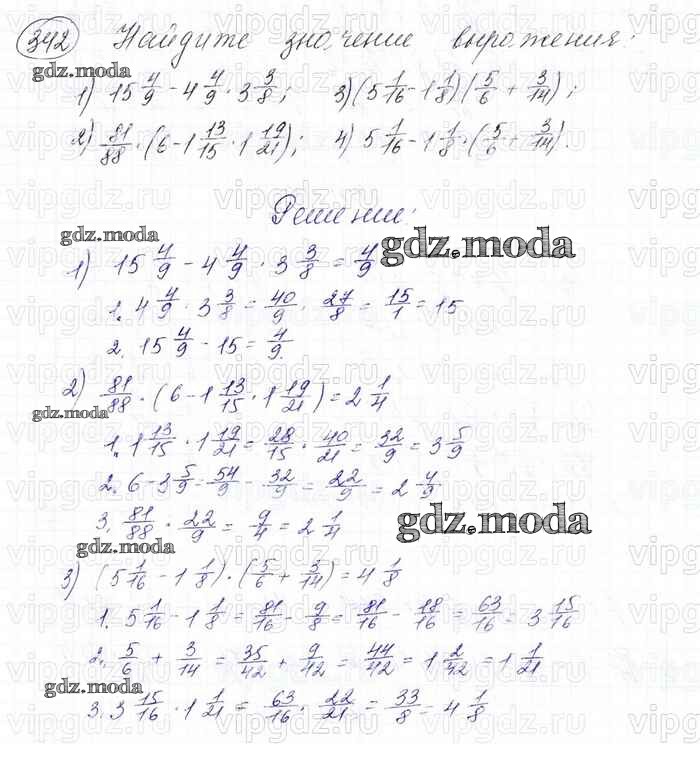 342 Найдите значение выражения:
gdz.moda
1) 15 4/9 - 4 4/9 · 3 3/8; 3) (5 1/16 - 1 1/8)(5/6 + 3/14);
2) 81/88 · (6 - 1 13/15 · 1 19/21); 4) 5 1/16 - 1 1/8 · (5/6 + 3/14).
Решение:
gdz.moda
1) 15 4/9 - 4 4/9 · 3 3/8 = 4/9
gdz.moda
1. 4 4/9 · 3 3/8 = 40/9 · 27/8 = 15/1 = 15
2. 15 4/9 - 15 = 4/9.
2) 81/88 · (6 - 1 13/15 · 1 19/21) = 2 1/4
gdz.moda
1. 1 13/15 · 1 19/21 = 28/15 · 40/21 = 32/9 = 3 5/9
2. 6 - 3 5/9 = 54/9 - 32/9 = 22/9 = 2 4/9
3. 81/88 · 22/9 = 9/4 = 2 1/4
gdz.moda
gdz.moda
3) (5 1/16 - 1 1/8) · (5/6 + 3/14) = 4 1/8
1. 5 1/16 - 1 1/8 = 81/16 - 9/8 = 81/16 - 18/16 = 63/16 = 3 15/16
2. 5/6 + 3/14 = 35/42 + 9/42 = 44/42 = 1 2/42 = 1 1/21
gdz.moda
3. 3 15/16 · 1 1/21 = 63/16 · 22/21 = 33/8 = 4 1/8
vipgdz.ru